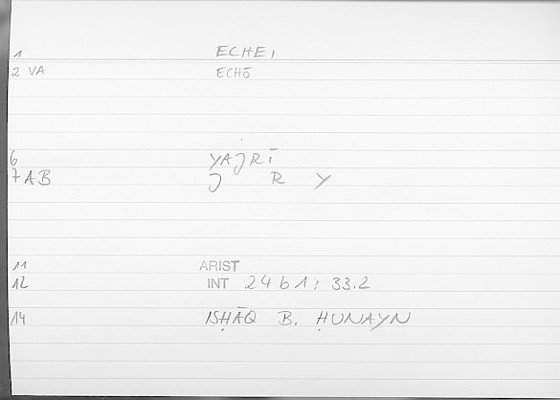 1 ECHEI
2 VA ECHŌ
6 YAJRĪ
7 AB J R Y
11 ARIST
12 INT 24b1; 33.2
14 ISḤĀQ B. ḤUNAYN